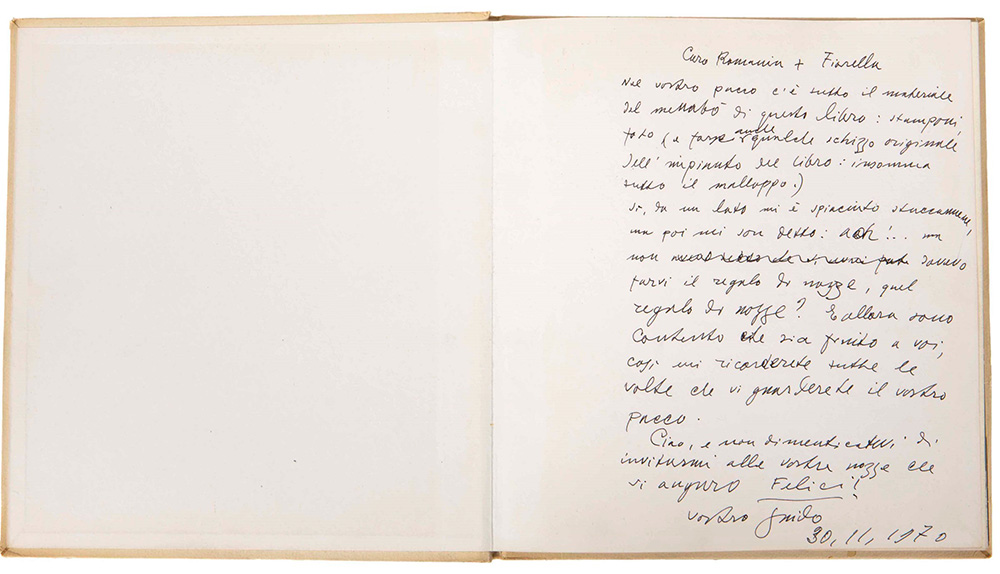 Caro Romanin + Fiorella
Nel vostro pacco c'è tutto il materiale
del menabò di questo libro: stamponi,
foto (e forse anche qualche schizzo originale
dell'impianto del libro: insomma
tutto il malloppo.)
Sì, da un lato mi è spiaciuto staccarmene,
ma poi mi son detto: ach!.. ma
non dovevo
farvi il regalo di nozze, quel
regalo di nozze? E allora sono
contento che sia finito a voi,
così mi ricorderete tutte le
volte che vi guarderete il vostro
pacco.
Ciao, e non dimenticatevi di
invitarmi alle vostre nozze che
vi auguro Felici!
vostro Guido
30, 11, 1970